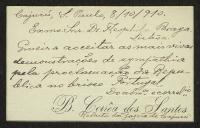 Cajurú, S. Paulo, 8/10/910.
Exmo Snr Dr. Braga
Lisboa
Queira aceitar as mais vivas
demonstrações de sympathia
pela proclamação da Repu-
blica no brioso Portugal.
B. Corrêa dos Santos